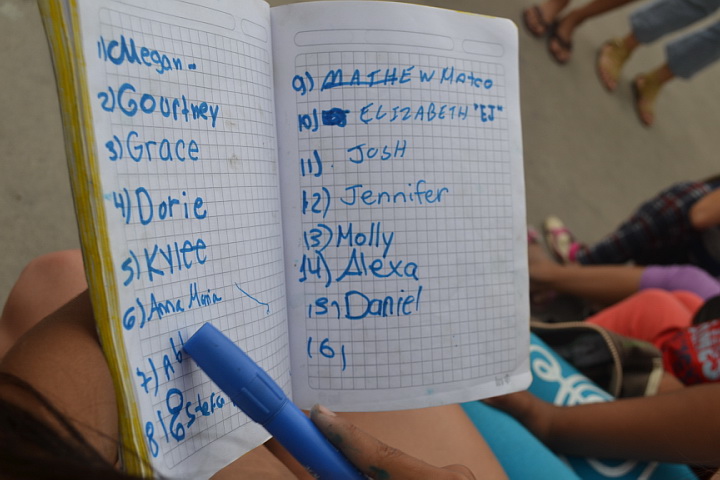 1) Megan-
2) Gourtney
3) Grace
4) Dorie
5) KYlEE
6) Anna Maria
7)
8)
9) MATHEW Mateo
10) ELIZABETH "EJ"
11) JOSH
12) Jennifer
13) Molly
14) Alexa
15) Daniel
16)